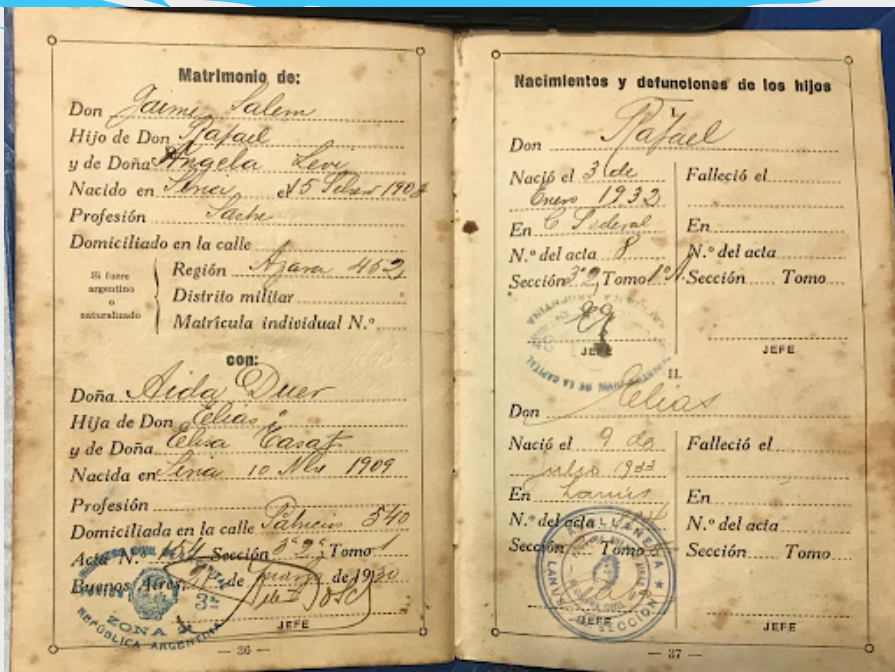 Matrimonio de:
Don Jaime Salem
Hijo de Don Rafael
y de Doña Angela Levi
Nacido en Siria el 15 1904
Profesión Sastre
Domiciliado en la calle
Si fuere argentino o naturalizado
Región Azara 452
Distrito militar
Matrícula individual N.º
con:
Doña Aida Duer
Hija de Don Elias
y de Doña Elisa
Nacida en Siria 10 1909
Profesión
Domiciliada en la calle Patricios 540
Acta N.º Sección 3ª 2ª Tomo 1
Buenos Aires, de de 1930
JEFE
3ª
ZONA
REPÚBLICA ARGENTINA
— 36 —
Nacimientos y defunciones de los hijos
I.
Don Rafael
Nació el 3 de
Enero 1932
En C Federal
N.º del acta 8
Sección 3ª 2ª Tomo 1º A
Falleció el
En
N.º del acta
Sección Tomo
JEFE
JEFE
DE LA CAPITAL
II.
Don Elias
Nació el 9 de
Julio 1933
En Lanus
N.º del acta
Sección Tomo
Falleció el
En
N.º del acta
Sección Tomo
AVELLANEDA
LANUS
SECCION
JEFE
JEFE
— 37 —